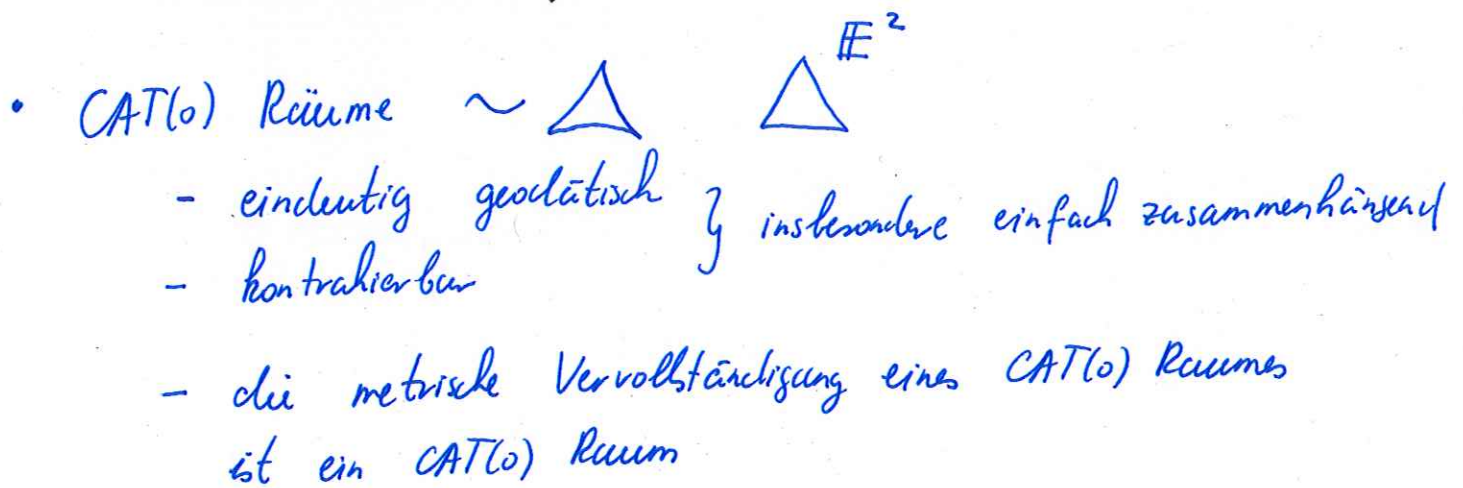 • CAT(0) Räume ~ △ △ 𝔼²
- eindeutig geodätisch } insbesondere einfach zusammenhängend
- kontrahierbar
- die metrische Vervollständigung eines CAT(0) Raumes
ist ein CAT(0) Raum